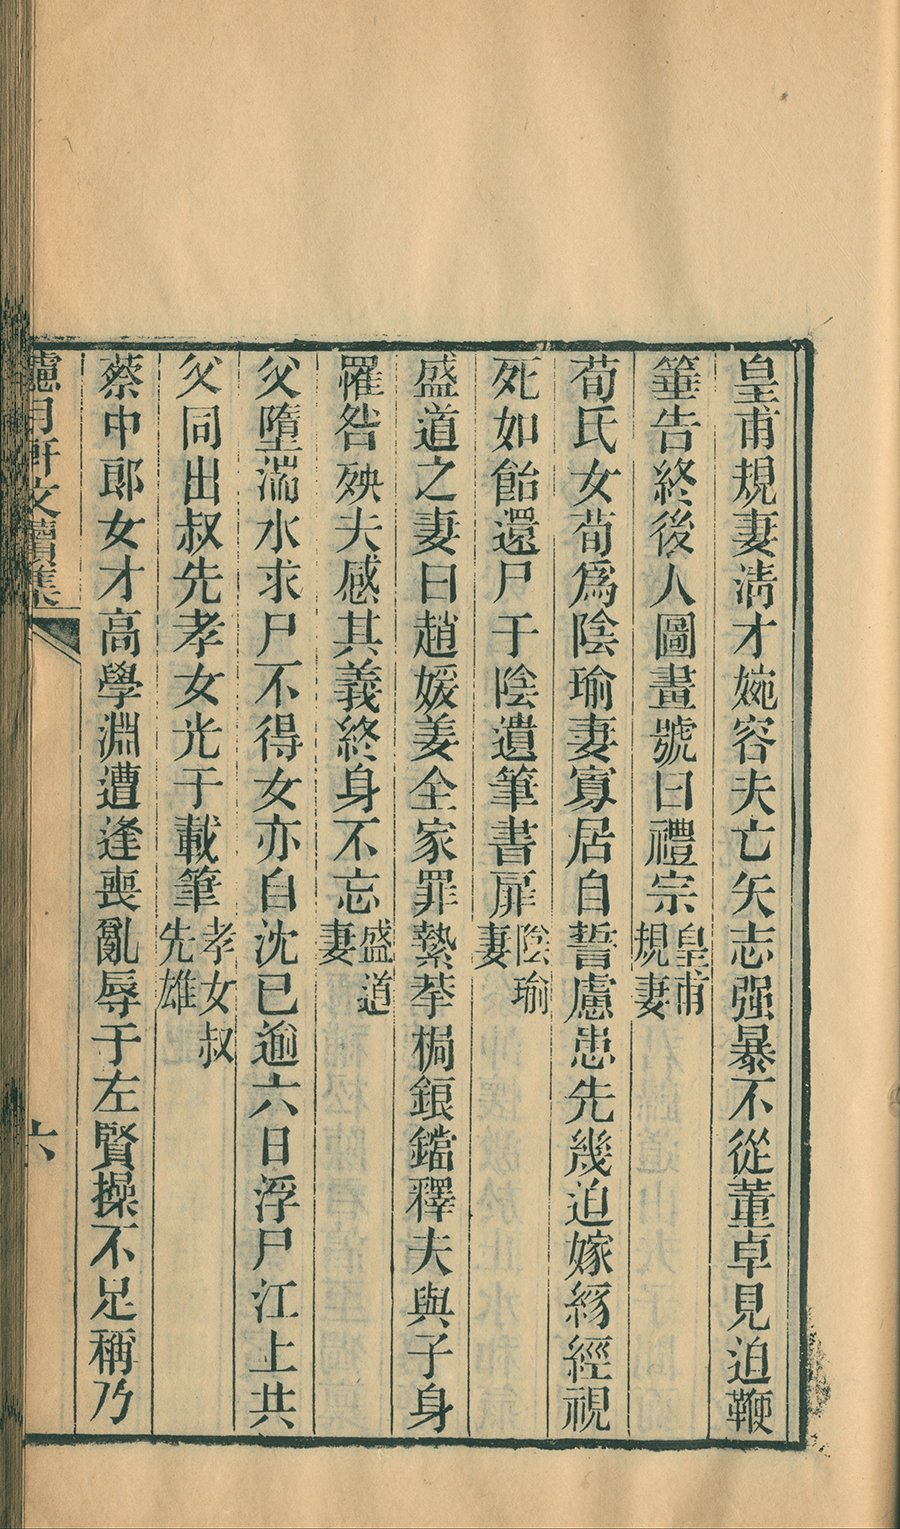 皇甫規妻淸才婉容夫亡矢志强暴不從董卓見迫鞭
箠告終後人圖畫號曰禮宗皇甫規妻
荀氏女荀爲陰瑜妻寡居自誓慮患先幾迫嫁縊經視
死如飴還尸于陰遺筆書扉陰瑜妻
盛道之妻曰趙媛姜全家罪縶拲梏鋃鐺釋夫與子身
罹咎殃夫感其義終身不忘盛道妻
父墮湍水求尸不得女亦自沈已逾六日浮尸江上共
父同出叔先孝女光于載筆孝女叔先雄
蔡中郎女才高學淵遭逢喪亂辱于左賢操不足稱乃
月軒文續集
六